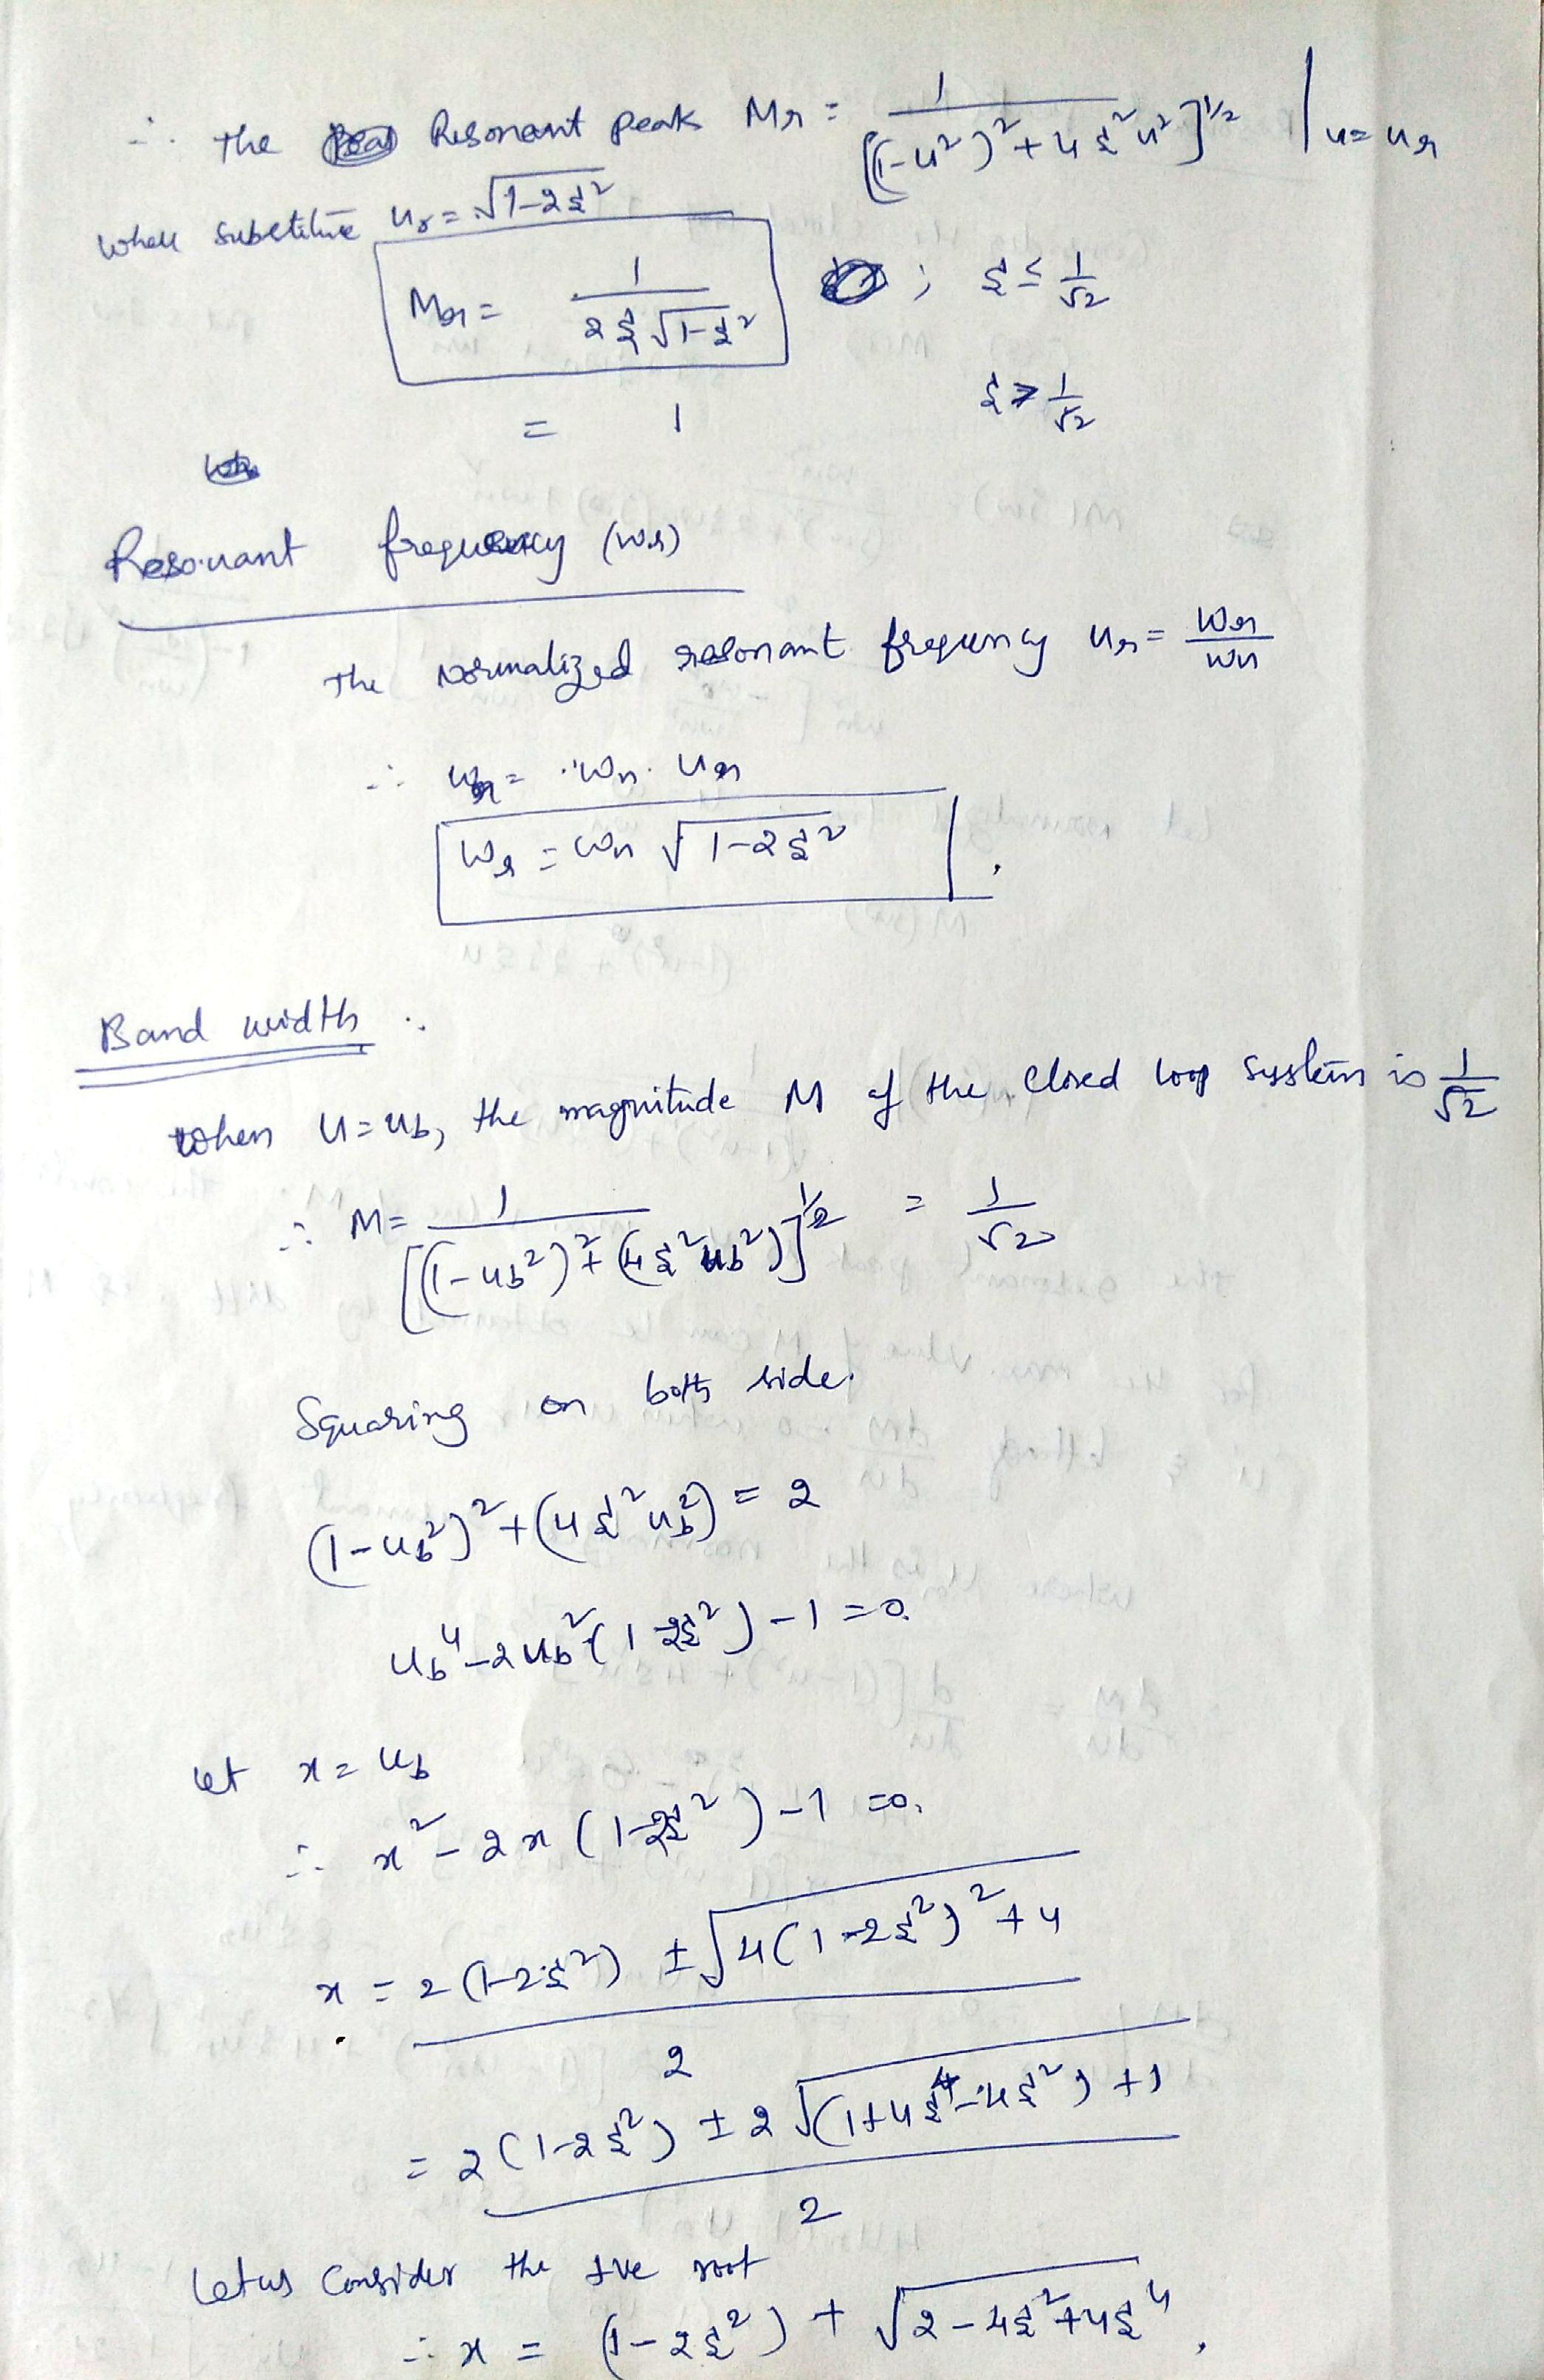 ∴ The Resonant peak Mr = 1 / [(1-u²)² + 4ξ²u²]^1/2 | u = ur
When substitute ur = √1-2ξ²
Mr = 1 / 2ξ√1-ξ² ; ξ ≤ 1/√2
= 1 ξ ≥ 1/√2
Resonant frequency (ωr)
The normalized resonant frequency ur = ωr/ωn
∴ ωr = ωn · ur
ωr = ωn √1-2ξ²
Band width :
When u = ub, the magnitude M of the closed loop system is 1/√2
∴ M = 1 / [(1-ub²)² + (4ξ²ub²)]^1/2 = 1/√2
Squaring on both side.
(1-ub²)² + (4ξ²ub²) = 2
ub⁴ - 2ub² (1-2ξ²) - 1 = 0.
let x = ub
∴ x² - 2x (1-2ξ²) - 1 = 0.
x = 2(1-2ξ²) ± √4(1-2ξ²)² + 4 / 2
= 2(1-2ξ²) ± 2√(1+4ξ⁴-4ξ²) + 1 / 2
Let us Consider the +ve root
∴ x = (1-2ξ²) + √2-4ξ²+4ξ⁴,